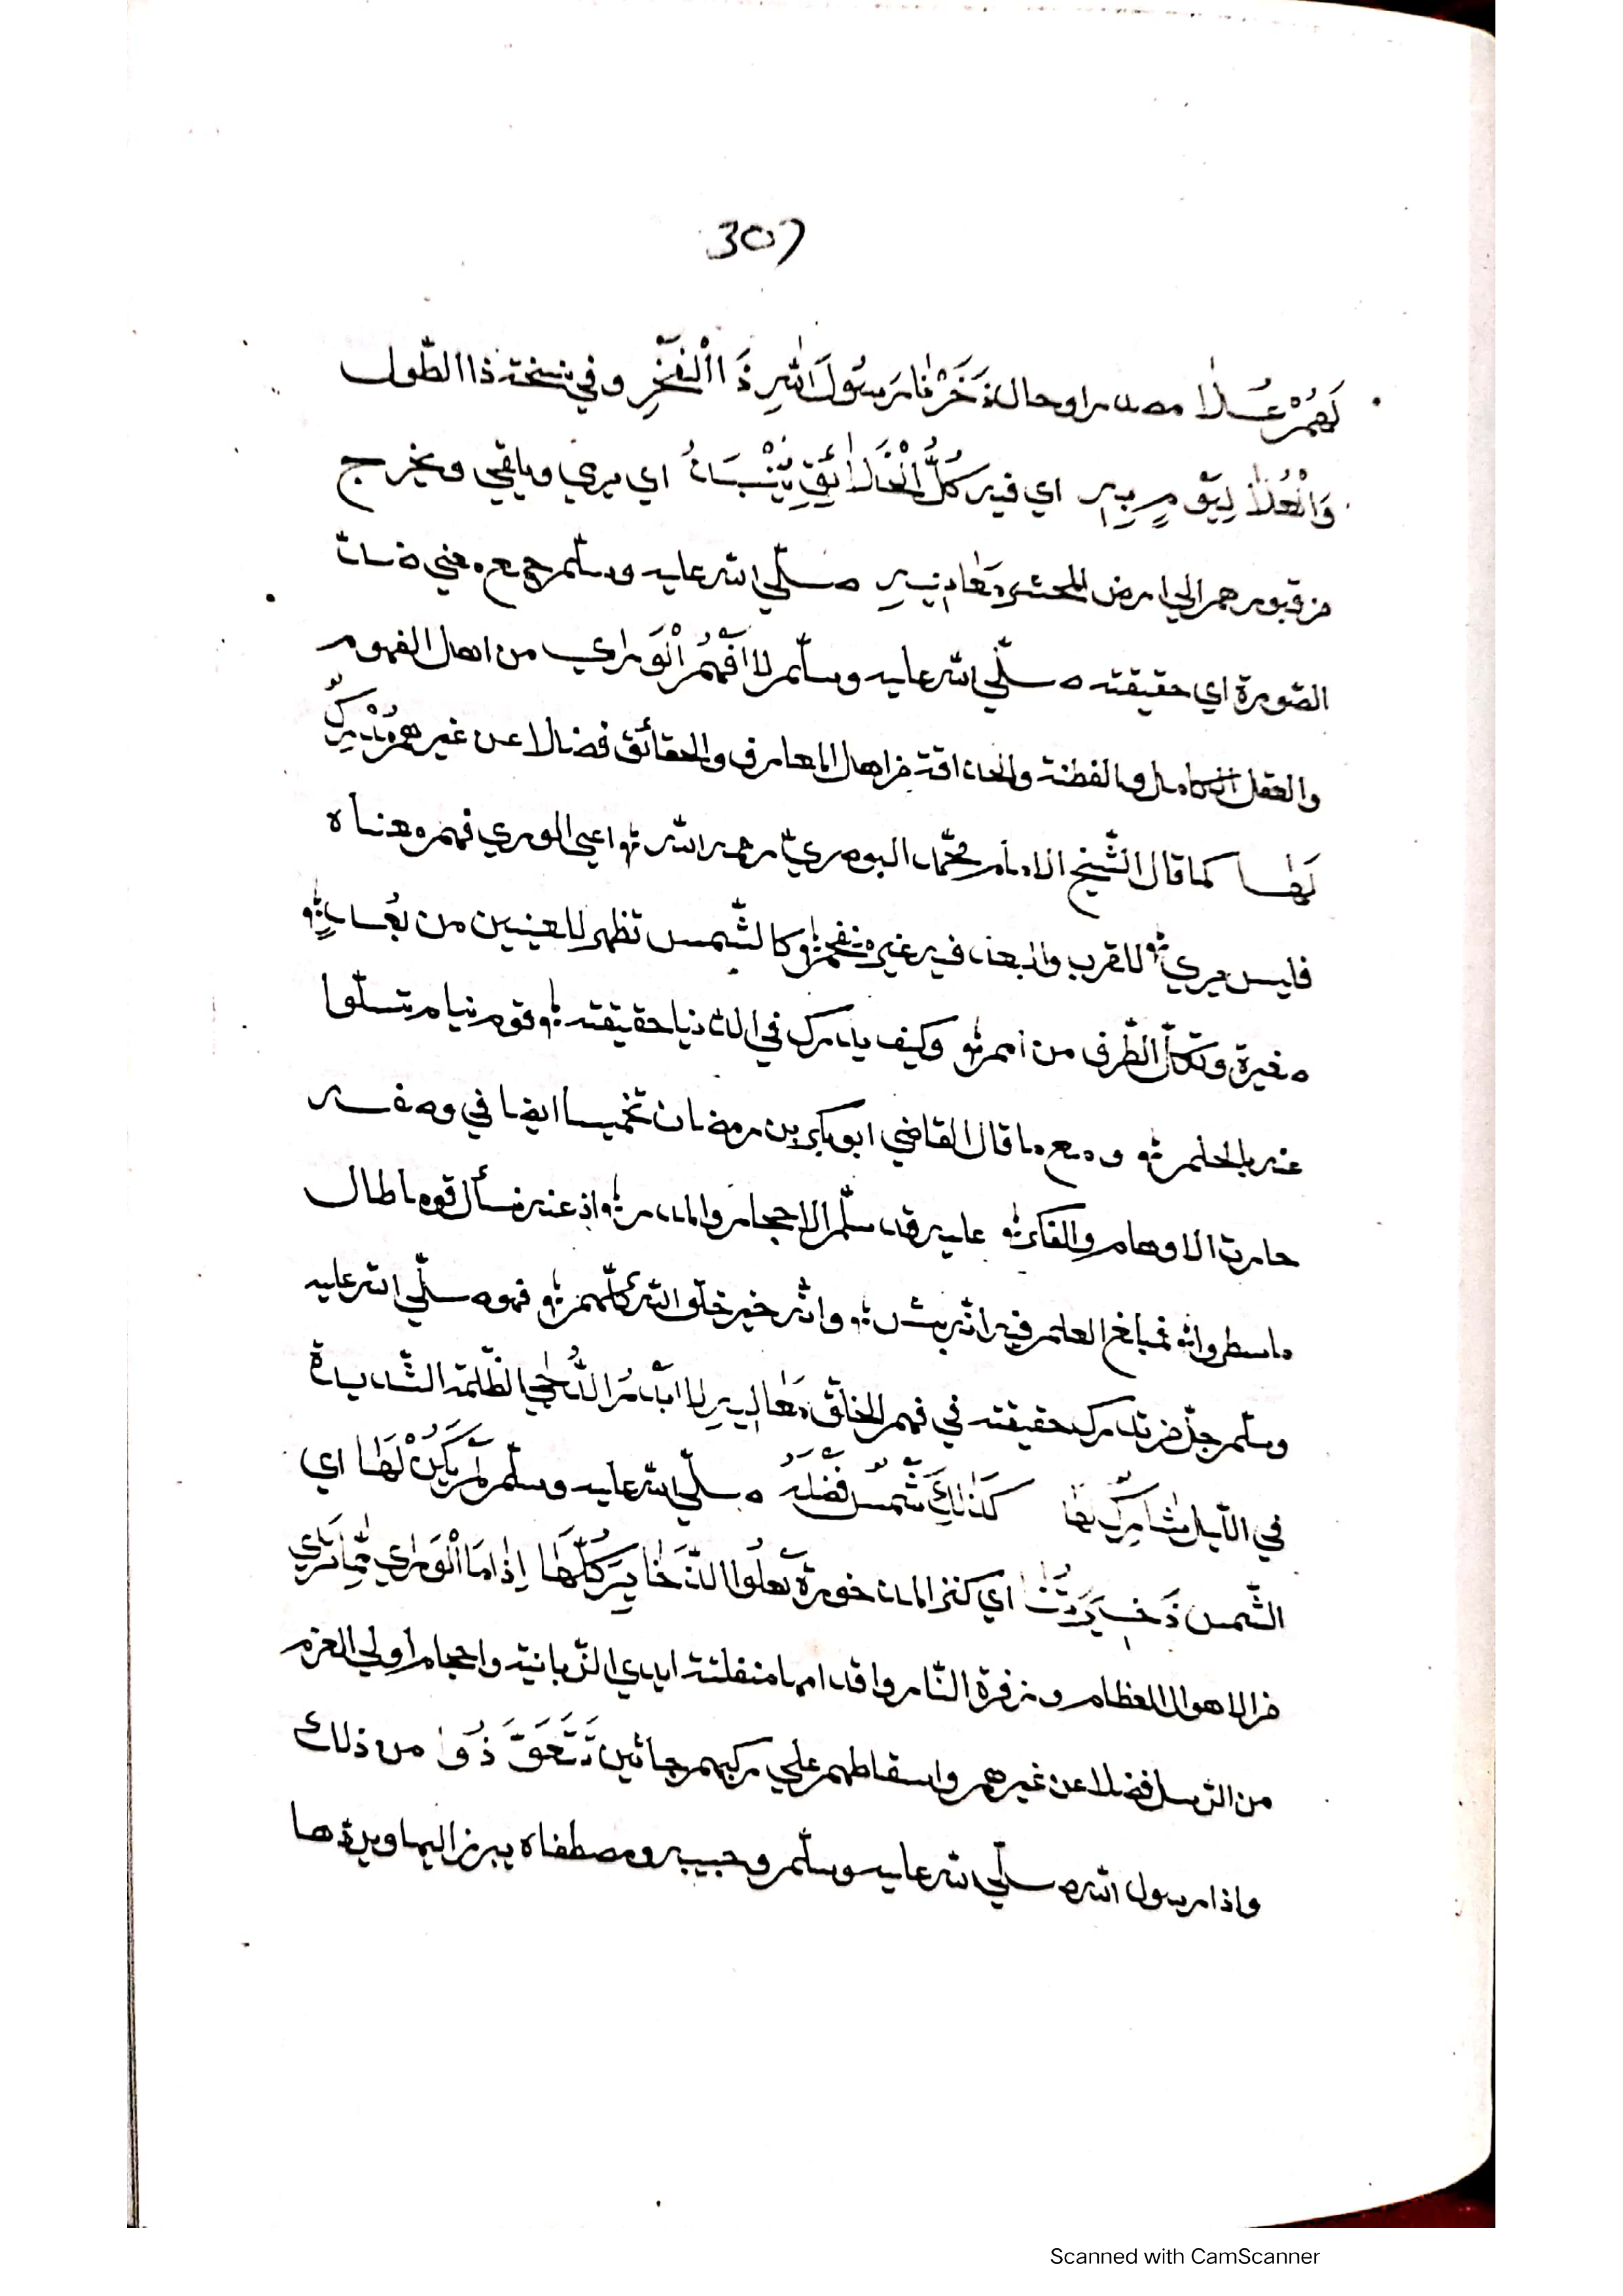 307
لَهُمْ عُدَدًا مصدر او حال ذَخَرْنَا رَسُولَ اللهِ ذَا الْفَخْرِ وفي نسخة ذا الطّول
وَالْعُلَا لِيَوْمٍ بِهِ اي فيه كُلُّ الْخَلَائِقِ يُنْبَذُ اي يرمي ويلقي ويخرج
من قبورهم الي ارض المحشر مَعَانِيهِ صلّي الله عليه وسلّم جمع معني ضدّ
الصّورة اي حقيقته صلّي الله عليه وسلّم لا اَفْهُمُ الْوَرٰي من اهل الفهوم
والعقل الكامل والفطنة والحذاقة من اهل المعارف والحقائق فضلا عن غيرهم مُدْرِكٌ
لَهَا كما قال الشّيخ الامام محمّد البوصريّ رحمه الله اعيى الوري فهم معناه
فليس يري للقرب والبعد فيه غير منفحم كالشّمس تظهر للعينين من بُعُدٍ
صغيرة وتكلّ الطّرف من امم وكيف يدرك في الدّنيا حقيقته قوم نيام تسلّوا
عنه بالحلم ومع ما قال القاضي ابو بكر بن رمضان تخميسا ايضا في وصفه
حارت الاوهام والفكر عليه قد سلّم الاحجار والمدر اذ عنه نسأل قوم ما طال
ما سطروا فمبلغ العلم فيه انّه بشر وانّه خير خلق الله كلّهم فهو صلّي الله عليه
وسلّم جلّ من تدرك حقيقته في فهم الخلق مَعَالِيهِ لا اَبْدُرُ الدُّجٰي الظّلمة الشّديدة
في اللّيل تُشَارِكُ بَهَا كَذٰلِكَ شَمْسُ فَضْلِهِ صلّي الله عليه وسلّم لَمْ يَكُنْ لَهَا اي
الشّمس ذَخِيرَتُنَا اي كنز المدخورة تَعْلُوا الذَّخَايِرَ كُلَّهَا اِذَا مَا الْوَرٰي مِمَّا تَرٰي
من الاهوال العظام وزفرة النّار واقدامها منفلتة ايدي الزّبانية واحجام اولي العزم
من الرّسل فضلا عن غيرهم واسقاطهم علي ركبهم جاثين تَتَعَوَّذُوا من ذلك
واذا رسول الله صلّي الله عليه وسلّم وحبيبه ومصطفاه يبرز اليها ويردّها
Scanned with CamScanner